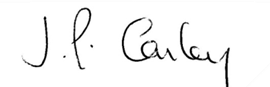 J. P. Carley